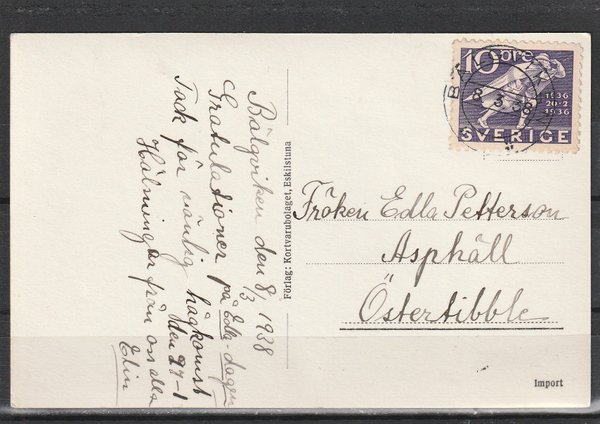 Bälgviken den 8/3 1938
Gratulationer på Edla-dagen
Tack för vänlig hågkomst
den 27-1
Hälsningar från oss alla
Elin
Förlag: Kortvarubolaget, Eskilstuna
10 öre
1636
20-2
1936
SVERIGE
8 3 38
Fröken Edla Petterson
Asphäll
Östertibble
Import